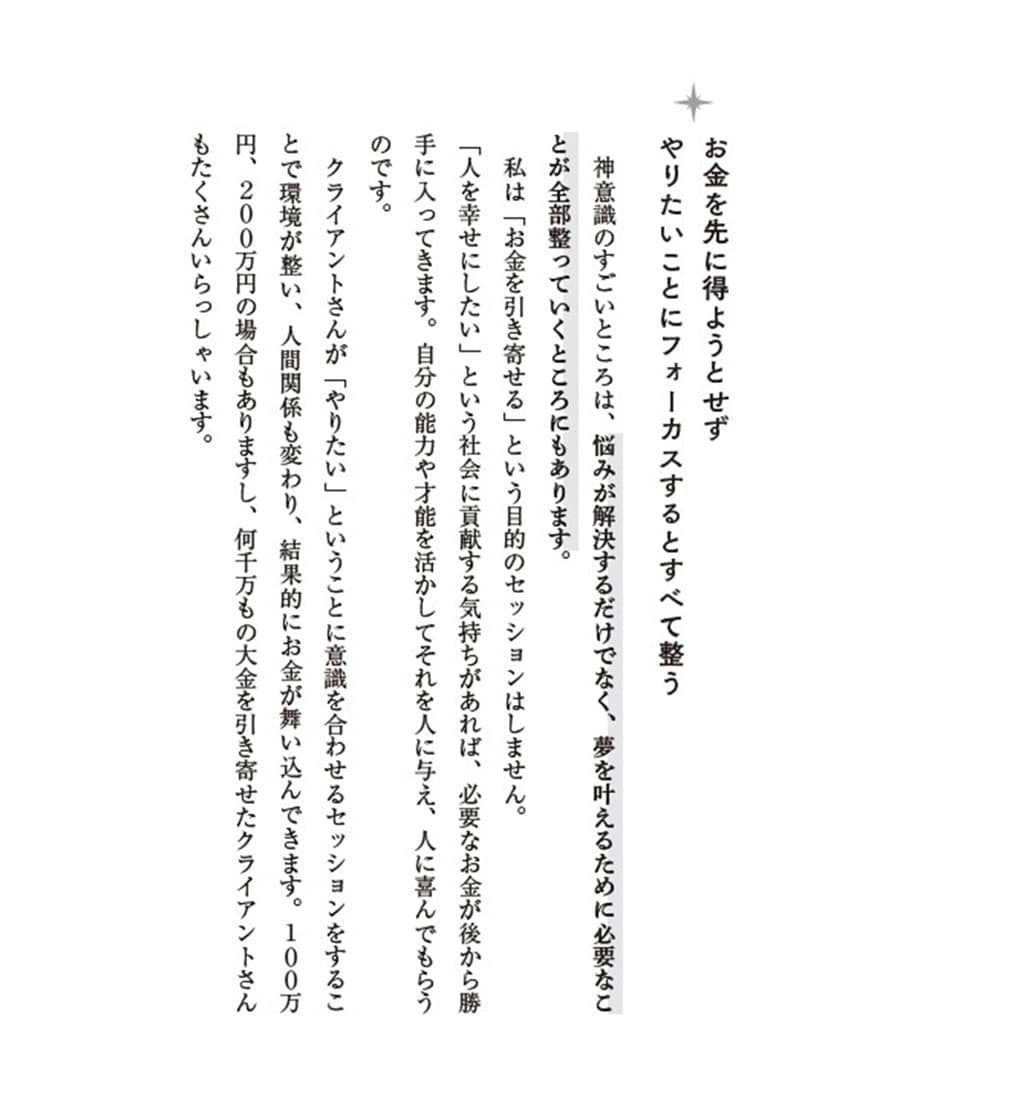 お金を先に得ようとせず
やりたいことにフォーカスするとすべて整う
神意識のすごいところは、悩みが解決するだけでなく、夢を叶えるために必要なこ
とが全部整っていくところにもあります。
私は「お金を引き寄せる」という目的のセッションはしません。
「人を幸せにしたい」という社会に貢献する気持ちがあれば、必要なお金が後から勝
手に入ってきます。自分の能力や才能を活かしてそれを人に与え、人に喜んでもらう
のです。
クライアントさんが「やりたい」ということに意識を合わせるセッションをするこ
とで環境が整い、人間関係も変わり、結果的にお金が舞い込んできます。100万
円、200万円の場合もありますし、何千万もの大金を引き寄せたクライアントさん
もたくさんいらっしゃいます。